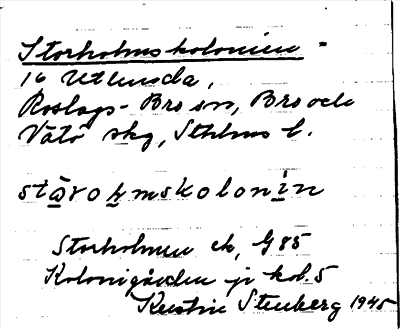 Storholmskolonien =
16 Utlunda,
Roslags-Bro sn, Bro och
Vätö skg, Sthlms l.
stårohmskolonin
Storholmen ek, G85
Kolonigården jr kol. 5
Kerstin Stenberg 1945